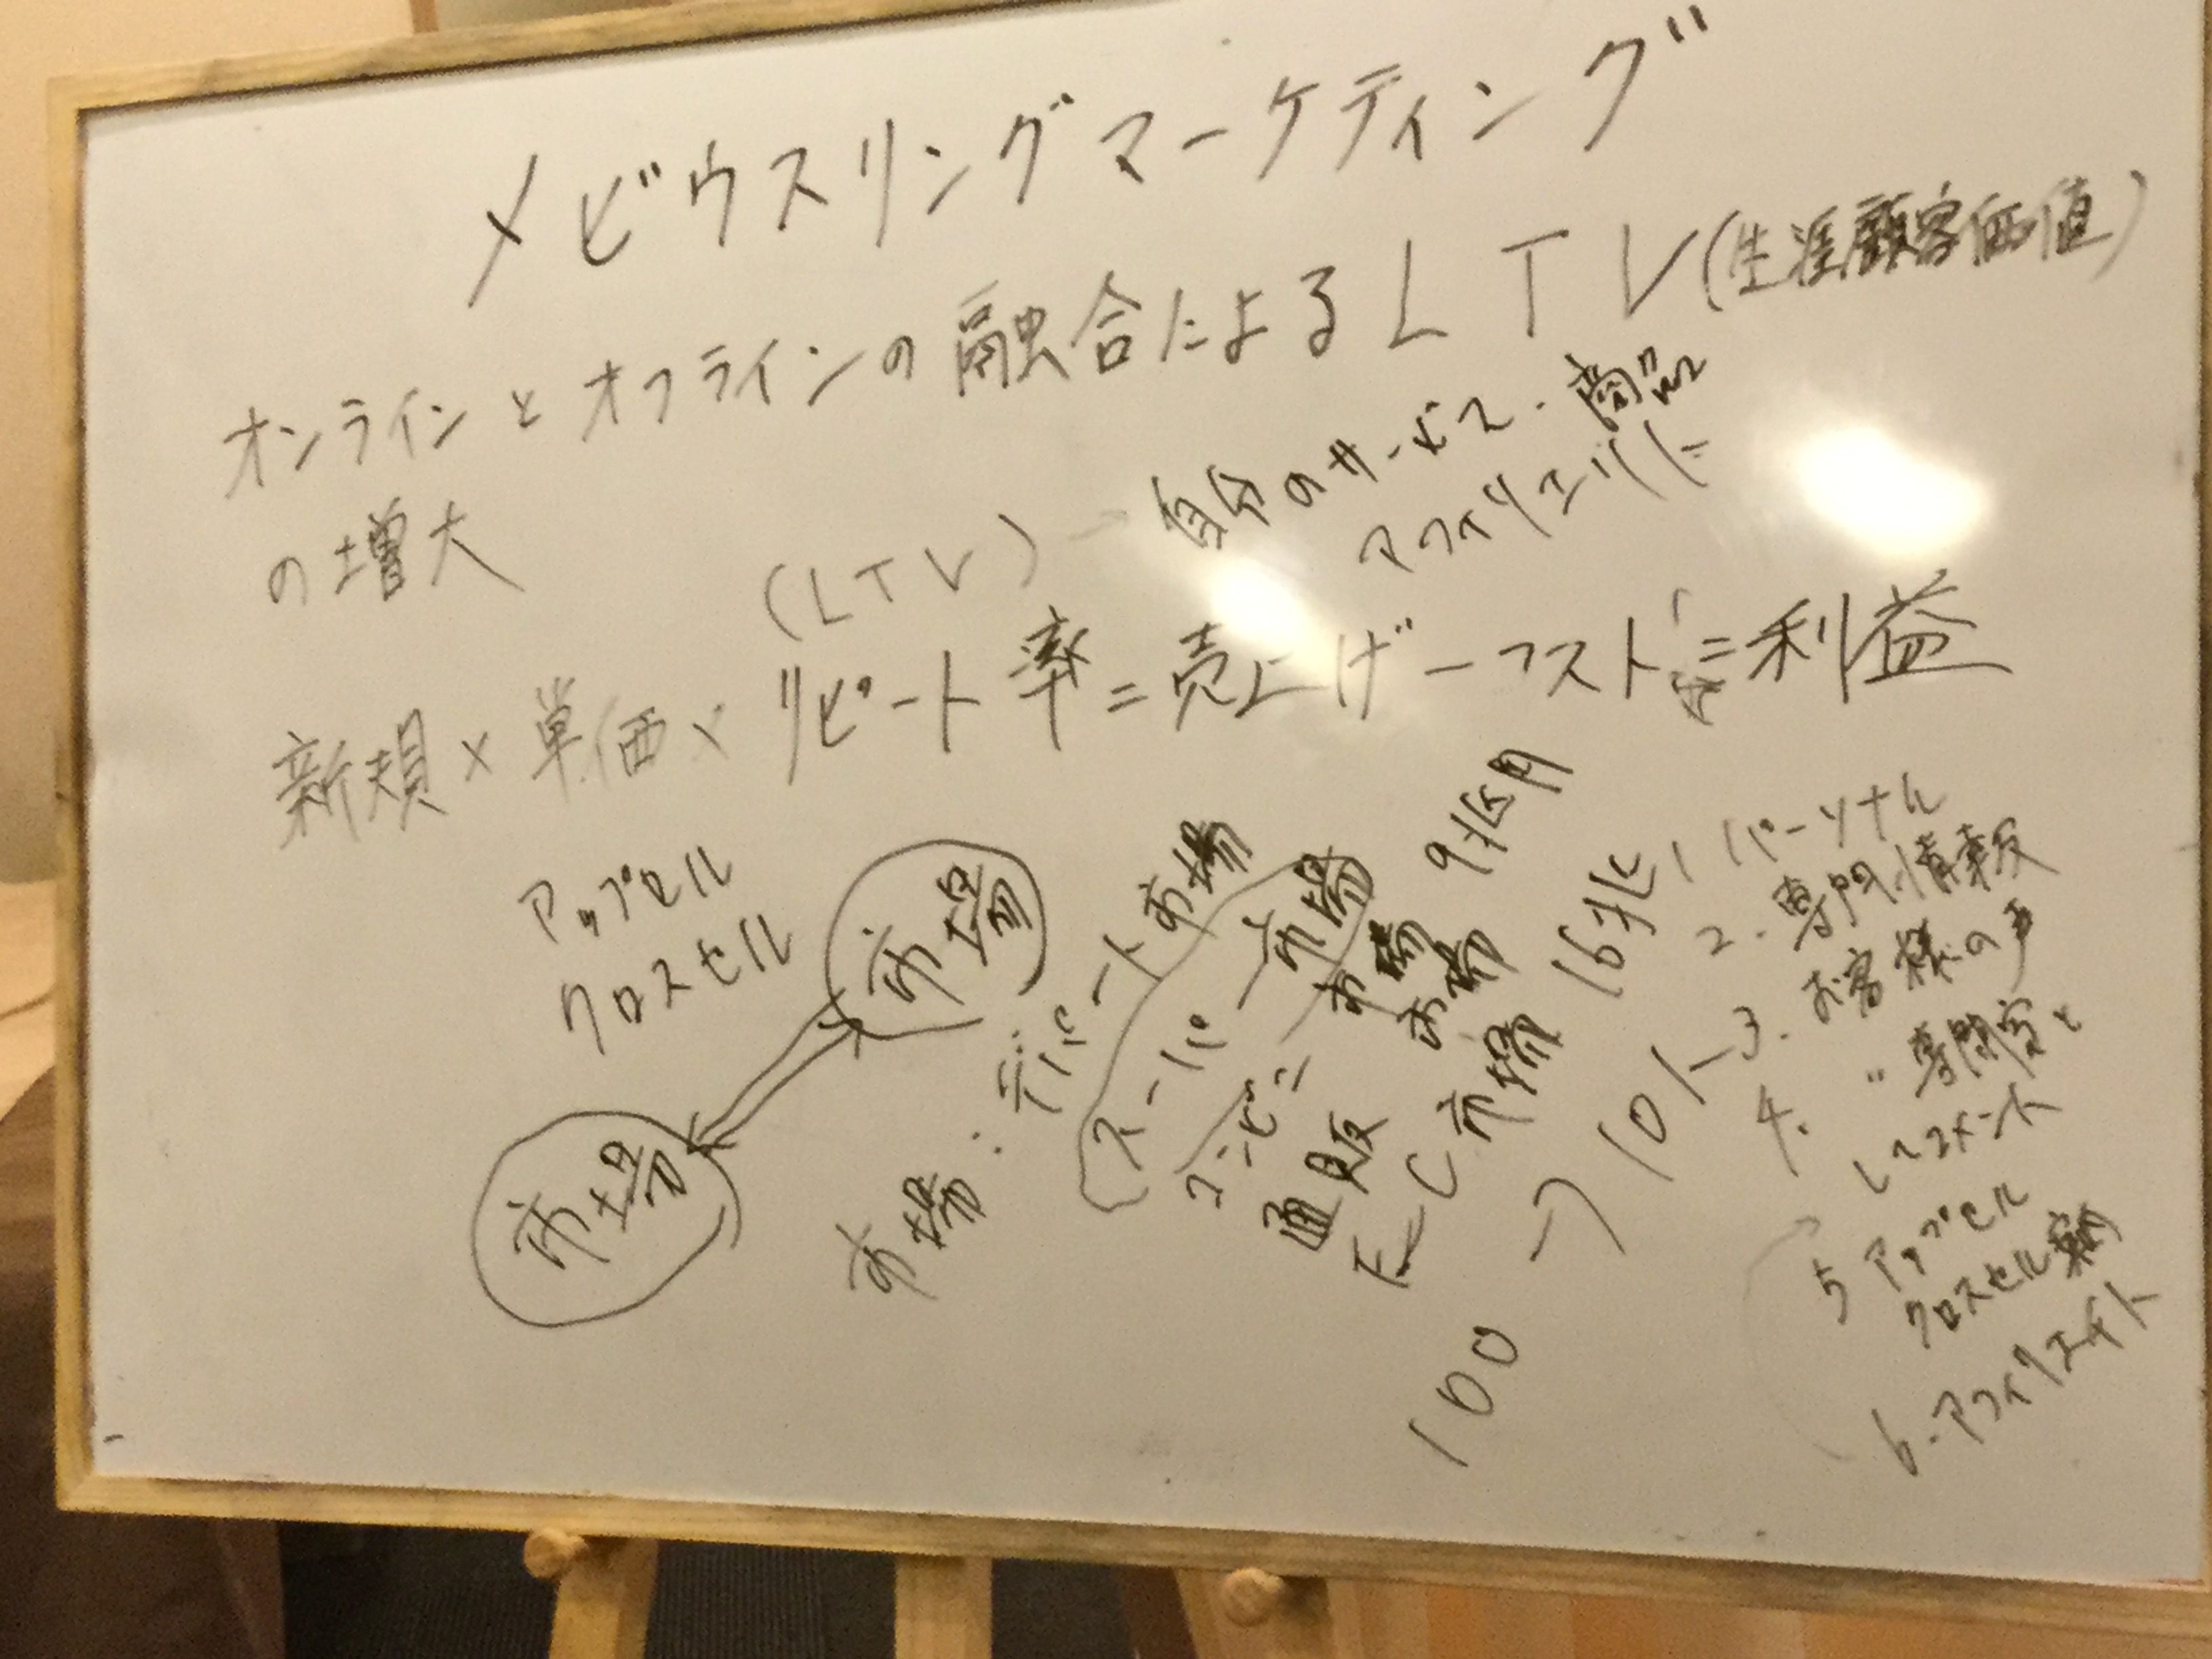 メビウスリングマーケティング
オンラインとオフラインの融合によるLTV(生涯顧客価値)
の増大
(LTV)→自分のサービス・商品
アフィリエイト
新規×単価×リピート率=売上げ-コスト=利益
アップセル
クロスセル
市場
市場
市場:デパート市場
スーパー市場
コンビニ市場 9兆円
通販市場
EC市場 16兆
100→10人
1 パーソナル
2.専門情報
3.お客様の声
4. 〃 専門家と
コメント
5 アップセル
クロスセル
6.アフィリエイト